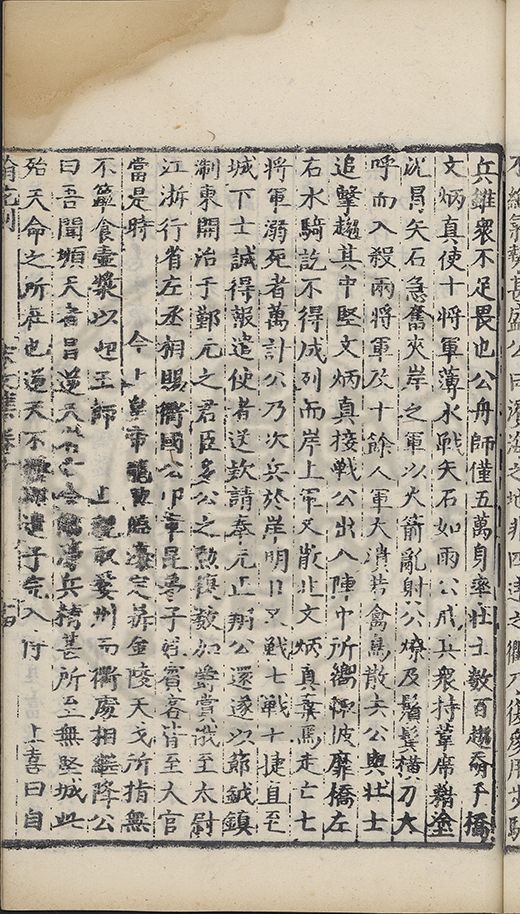 兵雖衆不足畏也公舟師僅五萬身率壯士數百趨奔子橋
文炳真使十將軍薄水戰矢石如雨公戒兵衆持葦席精塗
沈冒矢石急奮夾岸之軍以火箭亂射公燎及鬚鬢橫刀大
呼而入殺兩將軍及十餘人軍大潰若禽鳥散去公與壯士
追擊趨其中堅文炳真接戰公出入陣中所嚮輒披靡橋左
右水騎訖不得成列而岸上軍又散北文炳真棄馬走亡七
將軍溺死者萬計公乃次兵於岸明日又戰七戰十捷直至
城下士誠得報遣使者送款請奉元正朔公還遂以節鉞鎮
淛東開治于鄞元之君臣多公之勲復数加爵賞俄至太尉
江浙行省左丞相賜衢國公印章昆季子姓賓客皆至大官
當是時 今上皇帝龍飛臨濠定鼎金陵天戈所指無
不簞食壺漿以迎王師 上親取婺州而衢處相繼降公
曰吾聞順天者昌逆天者 兵精甚所至無堅城此
殆天命之所在也逆天不 遣子完入侍 上喜曰自
宋文集卷